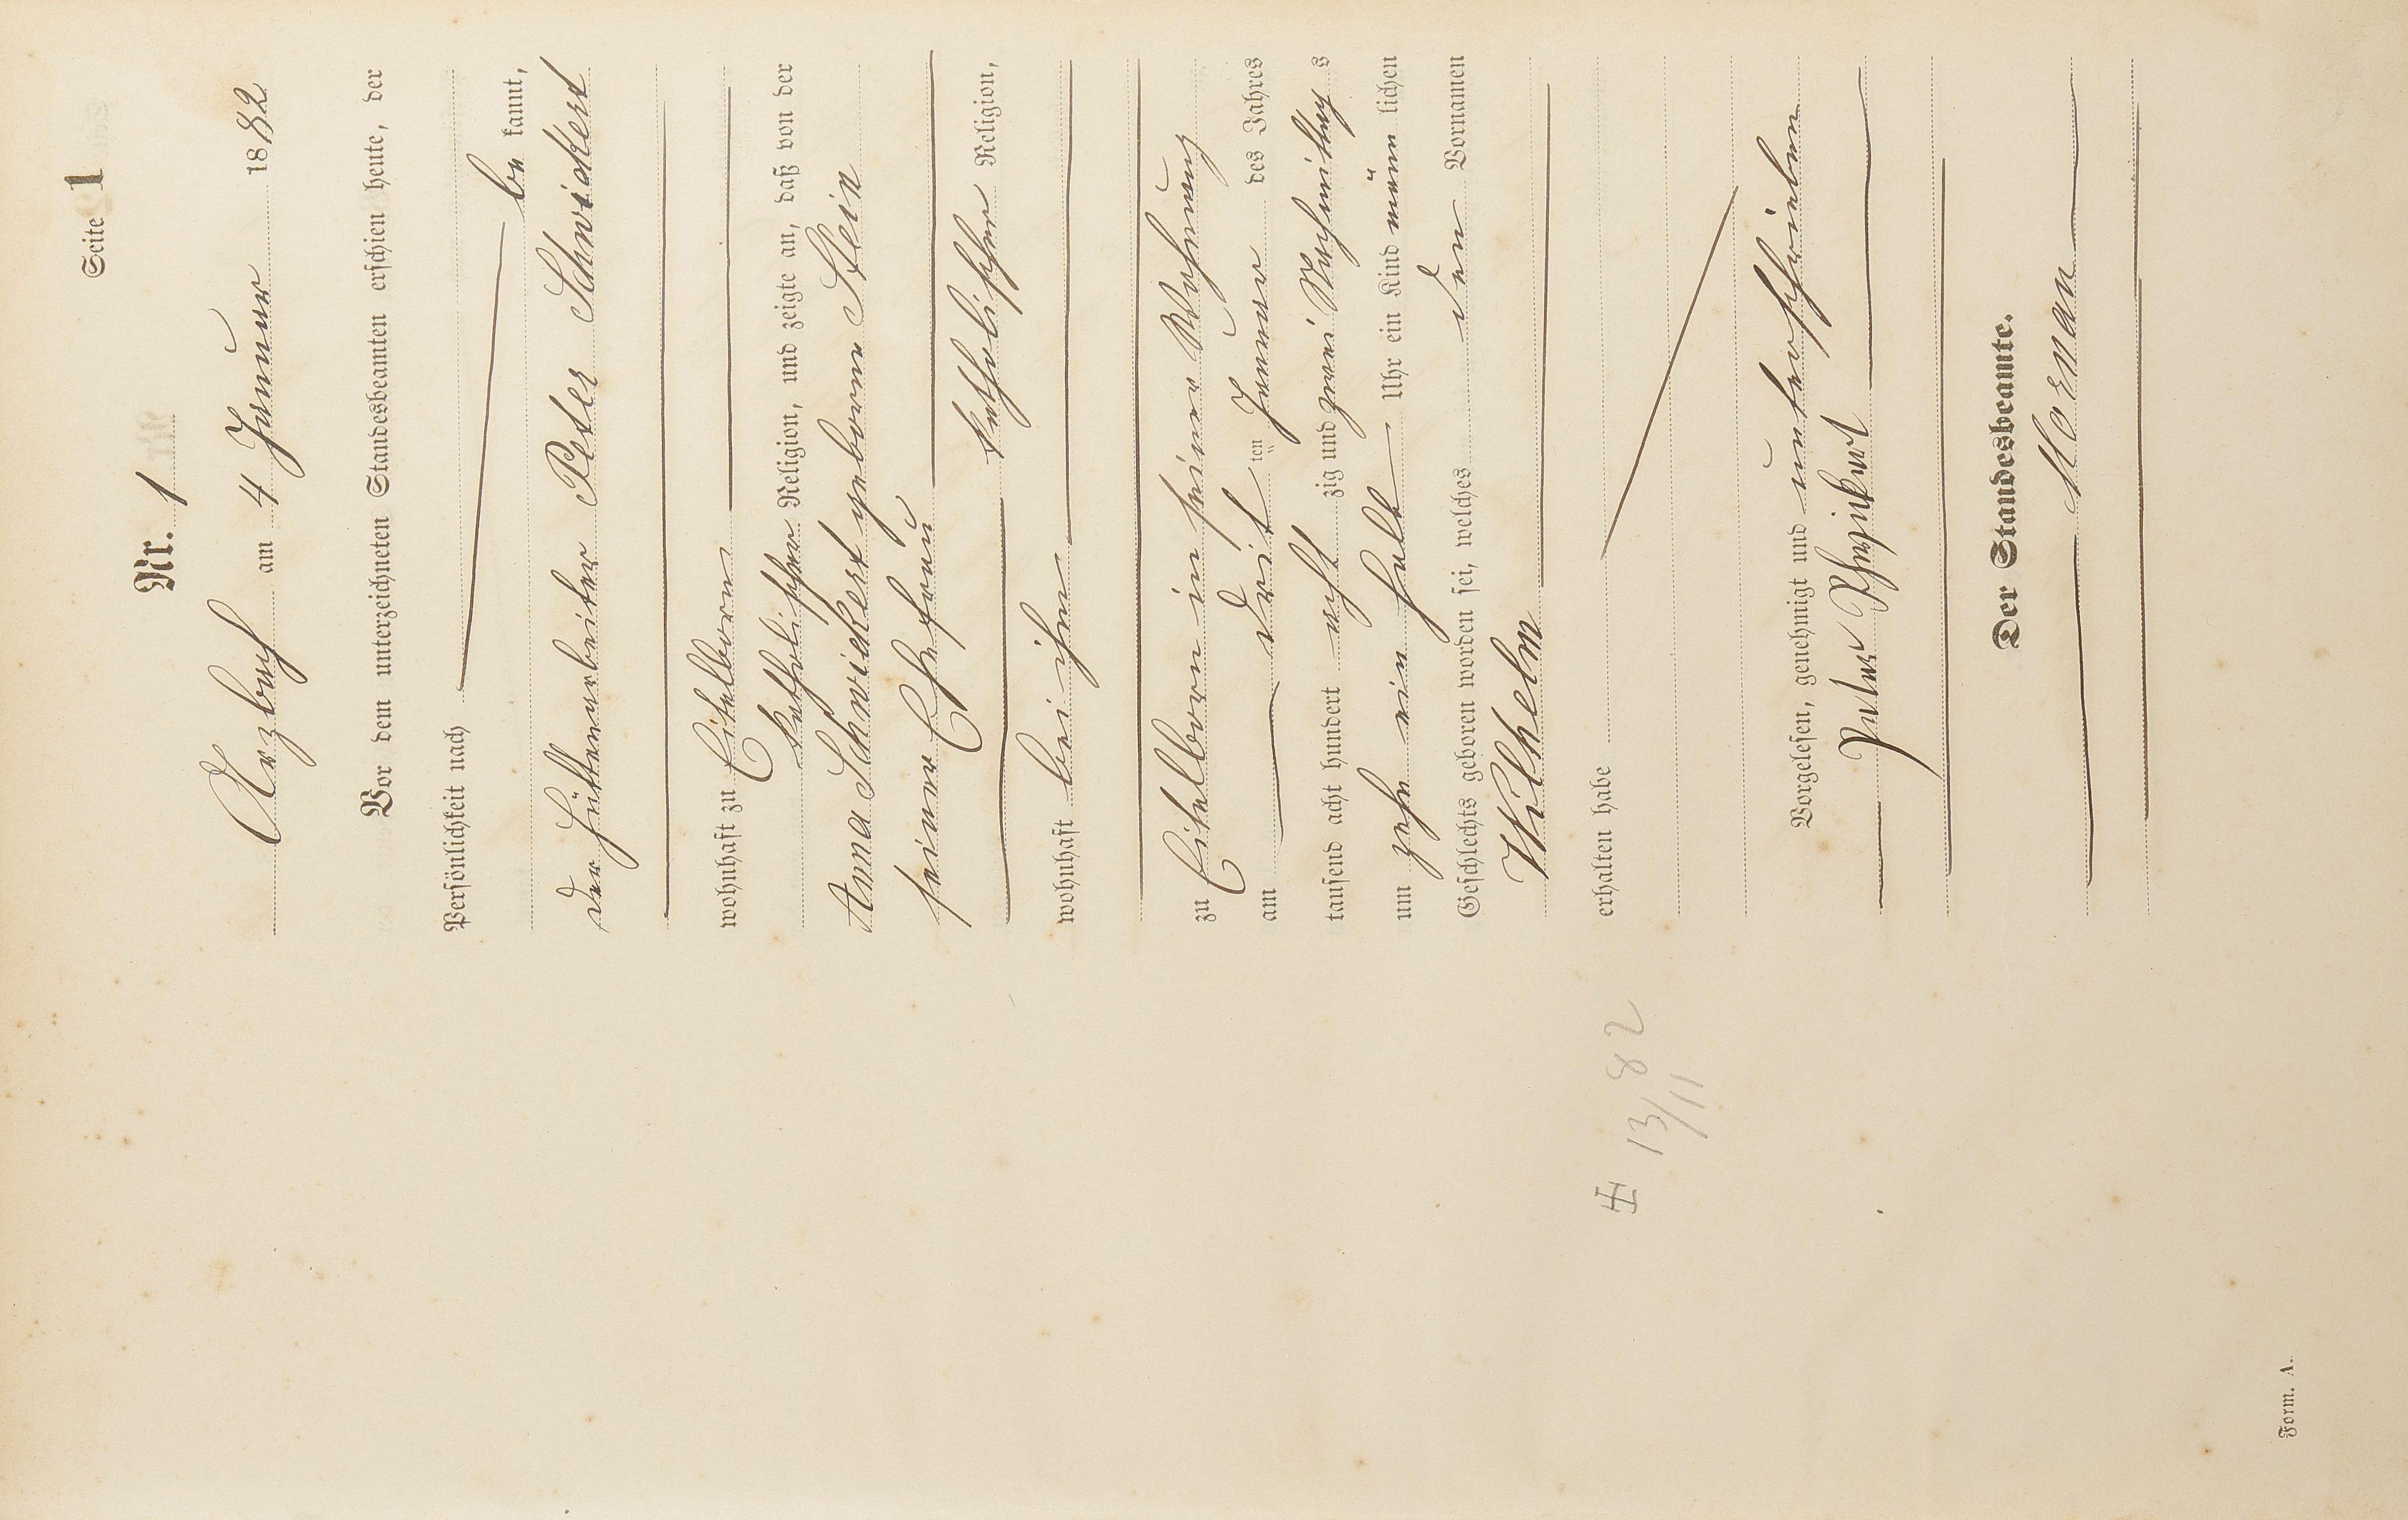 Seite 1
Nr. 1
Arzbach am 4 Januar 1882
Vor dem unterzeichneten Standesbeamten erschien heute, der
Persönlichkeit nach
be kannt,
der Hüttenarbeiter Peter Schwickert
wohnhaft zu Eitelborn
katholischer Religion, und zeigte an, daß von der
Anna Schwickert geborne Stein
seiner Ehefrau
katholischer Religion,
wohnhaft bei ihm
zu Eitelborn in seiner Wohnung
am drit ten Januar des Jahres
tausend acht hundert acht zig und zwei Nachmittag s
um zehn ein halb Uhr ein Kind männ lichen
Geschlechts geboren worden sei, welches den Vornamen
Wilhelm
erhalten habe
Vorgelesen, genehmigt und unterschrieben
Peter Schwickert
Der Standesbeamte.
13/11 82
Form. A.